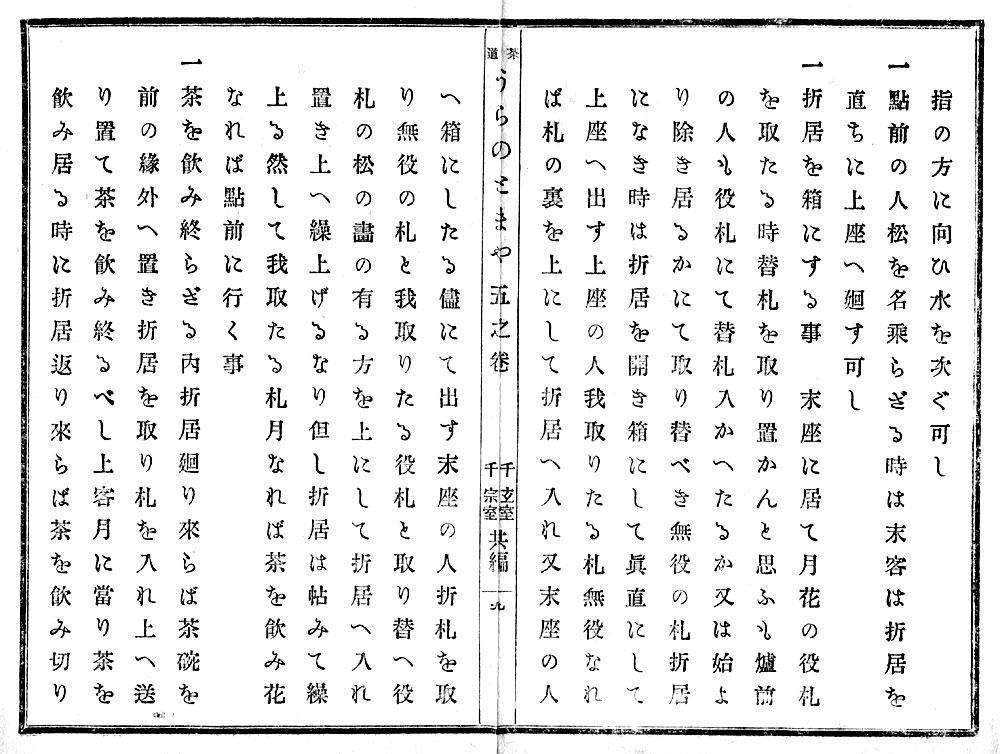 指の方に向ひ水を次ぐ可し
一點前の人松を名乘らざる時は末客は折居を
直ちに上座へ廻す可し
一折居を箱にする事　末座に居て月花の役札
を取たる時替札を取り置かんと思ふも爐前
の人も役札にて替札入かへたるか又は始よ
り除き居るかにて取り替べき無役の札折居
になき時は折居を開き箱にして眞直にして
上座へ出す上座の人我取りたる札無役なれ
ば札の裏を上にして折居へ入れ又末座の人
茶道
うらのとまや五之卷
千玄室
千宗室
共編
九
へ箱にしたる儘にて出す末座の人折札を取
り無役の札と我取りたる役札と取り替へ役
札の松の畵の有る方を上にして折居へ入れ
置き上へ繰上げるなり但し折居は帖みて繰
上る然して我取たる札月なれば茶を飮み花
なれば點前に行く事
一茶を飮み終らざる內折居廻り來らば茶碗を
前の緣外へ置き折居を取り札を入れ上へ送
り置て茶を飮み終るべし上客月に當り茶を
飮み居る時に折居返り來らば茶を飮み切り